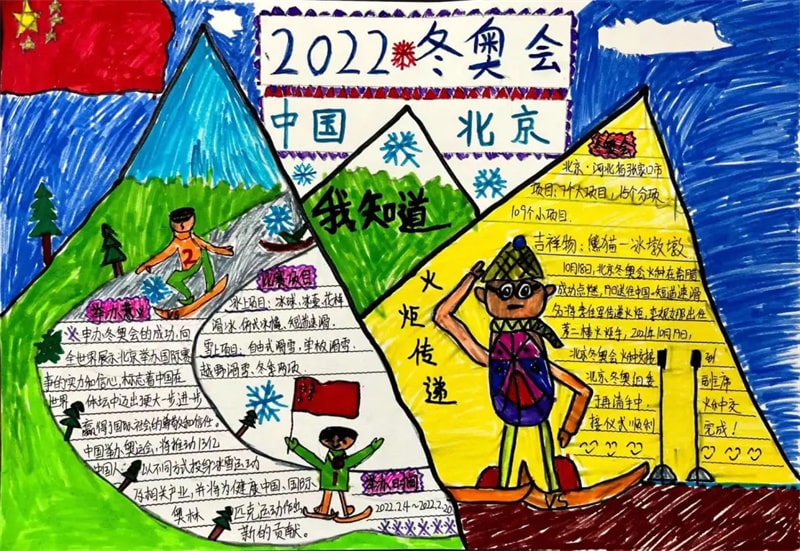 2022 冬奥会
中国 北京
我知道
举办意义
申办冬奥会的成功,向
全世界展示北京举办国际赛
事的实力和信心,标志着中国在
世界体坛中迈出更大步进步
赢得了国际社会的尊敬和信任。
中国举办奥运会,将推动13亿
中国人以不同方式投身冰雪运动
及相关产业,并将为健康中国、国际
奥林匹克运动作出
新的贡献。
比赛项目
冰上项目:冰球、冰壶、花样
滑冰、短道速滑
雪上项目:自由式滑雪、单板滑雪、
越野滑雪、冬季两项
举办时间
2022.2.4~2022.2.20
火炬传递
冬奥会
北京·河北省张家口市
项目:7个大项目,15个分项
109个小项目
吉祥物:熊猫-冰墩墩
10月18日,北京冬奥会火种在希腊
成功点燃,
第一棒火炬手,2021年10月19日,
北京冬奥会火种交接
北京冬奥组委
于再清手中
接仪式顺利
副主席
火种交
完成!